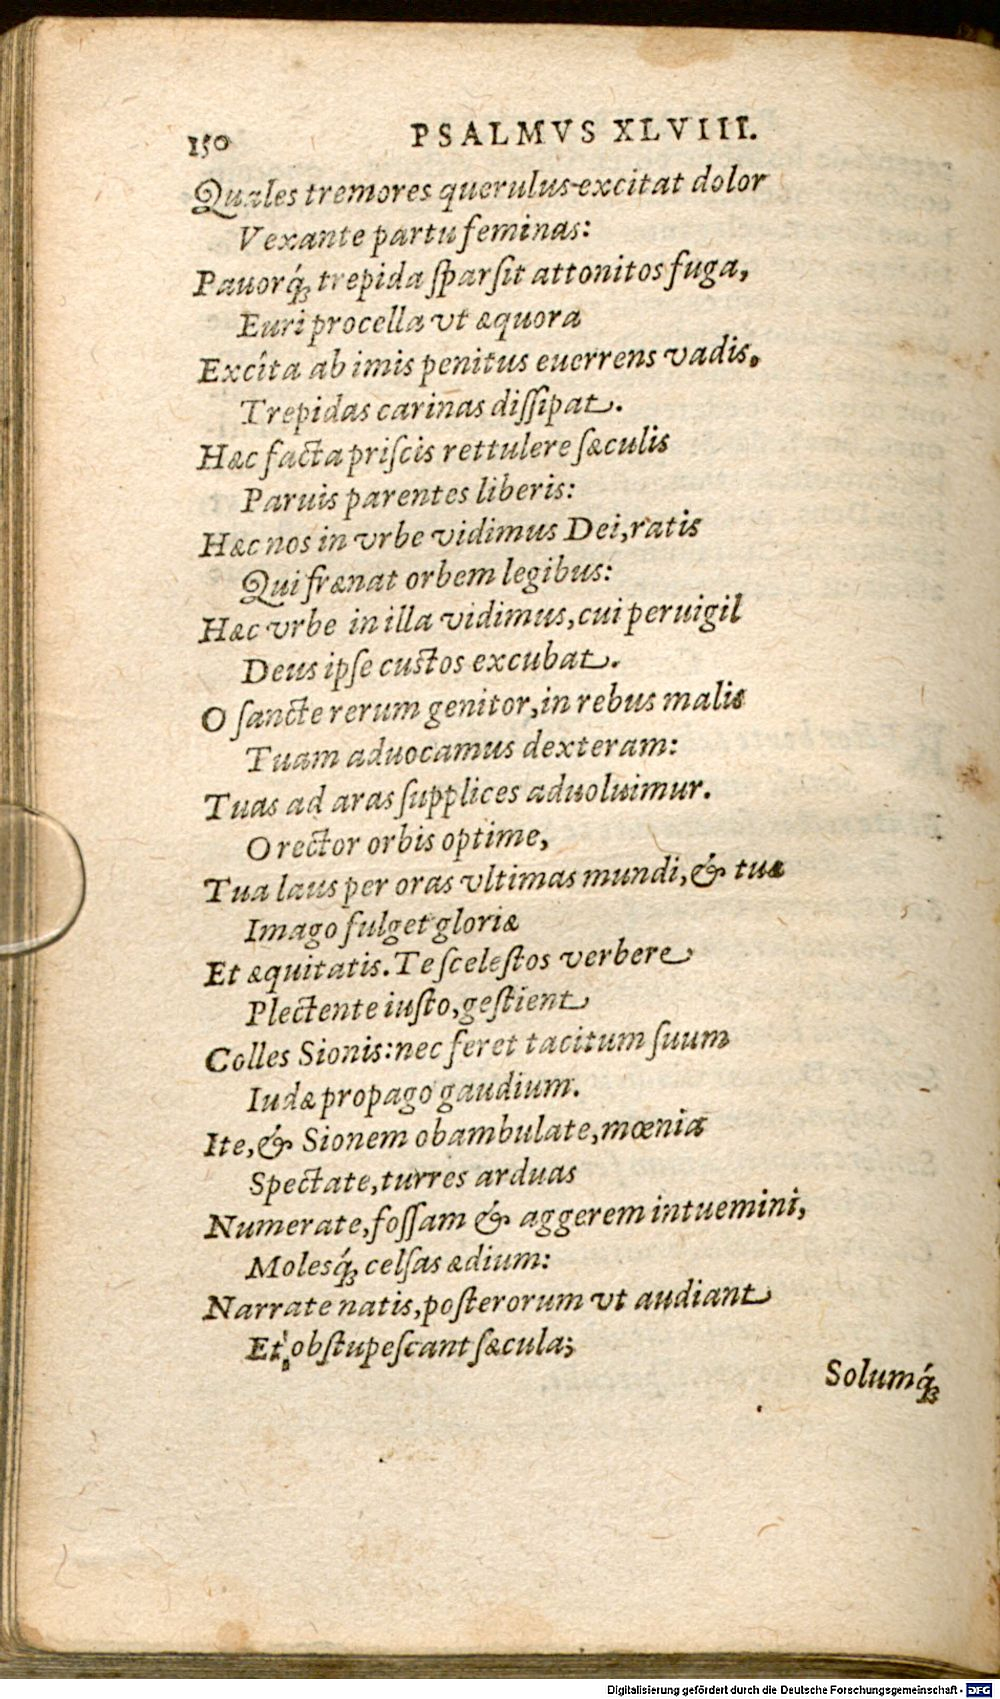 150 PSALMVS XLVIII.
Quales tremores querulus excitat dolor
Vexante partu feminas:
Pauorq́; trepida ſparſit attonitos fuga,
Euri procella vt æquora
Excíta ab imis penitus euerrens vadis,
Trepidas carinas diſſipat.
Hæc facta priſcis rettulere ſæculis
Paruis parentes liberis:
Hæc nos in vrbe vidimus Dei, ratis
Qui frænat orbem legibus:
Hæc vrbe in illa vidimus, cui peruigil
Deus ipſe cuſtos excubat.
O ſancte rerum genitor, in rebus malis
Tuam aduocamus dexteram:
Tuas ad aras ſupplices aduoluimur.
O rector orbis optime,
Tua laus per oras vltimas mundi, & tuæ
Imago fulget gloriæ
Et æquitatis. Te ſceleſtos verbere
Plectente iuſto, geſtient
Colles Sionis: nec feret tacitum ſuum
Iudæ propago gaudium.
Ite, & Sionem obambulate, mœnia
Spectate, turres arduas
Numerate, foſſam & aggerem intuemini,
Molesq́; celſas ædium:
Narrate natis, poſterorum vt audiant
Et obſtupeſcant ſæcula;
Solumq́;
Digitalisierung gefördert durch die Deutsche Forschungsgemeinschaft - DFG